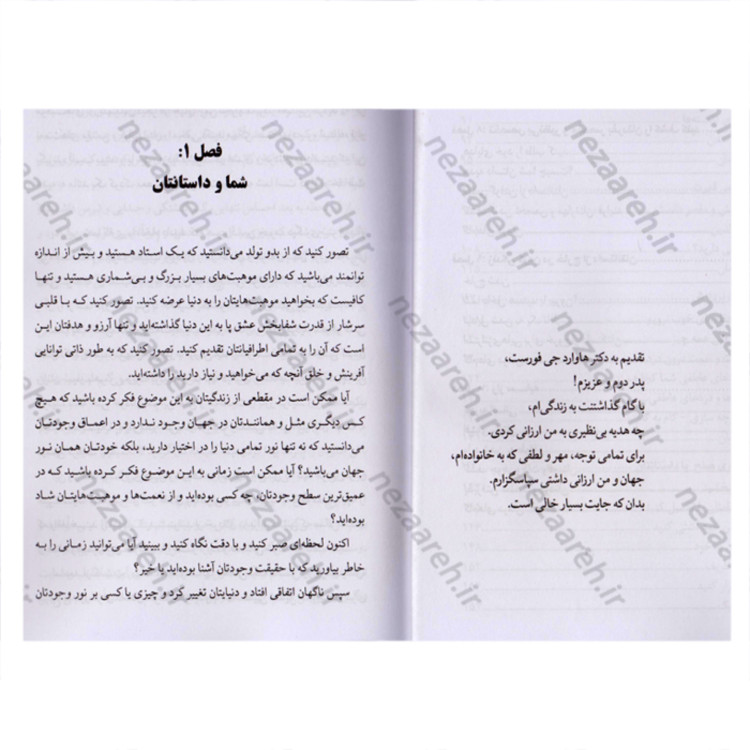 تقدیم به دکتر هاوارد جی فورست،
پدر دوم و عزیزم!
با گام گذاشتنت به زندگی‌ام،
چه هدیه بی‌نظیری به من ارزانی کردی.
برای تمامی توجه، مهر و لطفی که به خانواده‌ام،
جهان و من ارزانی داشتی سپاسگزارم.
بدان که جایت بسیار خالی است.
فصل ۱:
شما و داستانتان
تصور کنید که از بدو تولد می‌دانستید که یک استاد هستید و بیش از اندازه
توانمند می‌باشید که دارای موهبت‌های بسیار بزرگ و بی‌شماری هستید و تنها
کافیست که بخواهید موهبت‌هایتان را به دنیا عرضه کنید. تصور کنید که با قلبی
سرشار از قدرت شفابخش عشق پا به این دنیا گذاشته‌اید و تنها آرزو و هدفتان این
است که آن را به تمامی اطرافیانتان تقدیم کنید. تصور کنید که به طور ذاتی توانایی
آفرینش و خلق آنچه که می‌خواهید و نیاز دارید را داشته‌اید.
آیا ممکن است در مقطعی از زندگیتان به این موضوع فکر کرده باشید که هیچ
کس دیگری مثل و همانندتان در جهان وجود ندارد و در اعماق وجودتان
می‌دانستید که نه تنها نور تمامی دنیا را در اختیار دارید، بلکه خودتان همان نور
جهان می‌باشید؟ آیا ممکن است زمانی به این موضوع فکر کرده باشید که در
عمیق‌ترین سطح وجودتان، چه کسی بوده‌اید و از نعمت‌ها و موهبت‌هایتان شاد
بوده‌اید؟
اکنون لحظه‌ای صبر کنید و با دقت نگاه کنید و ببینید آیا می‌توانید زمانی را به
خاطر بیاورید که با حقیقت وجودتان آشنا بوده‌اید یا خیر؟
سپس ناگهان اتفاقی افتاد و دنیایتان تغییر کرد و چیزی یا کسی بر نور وجودتان
nezaareh.ir